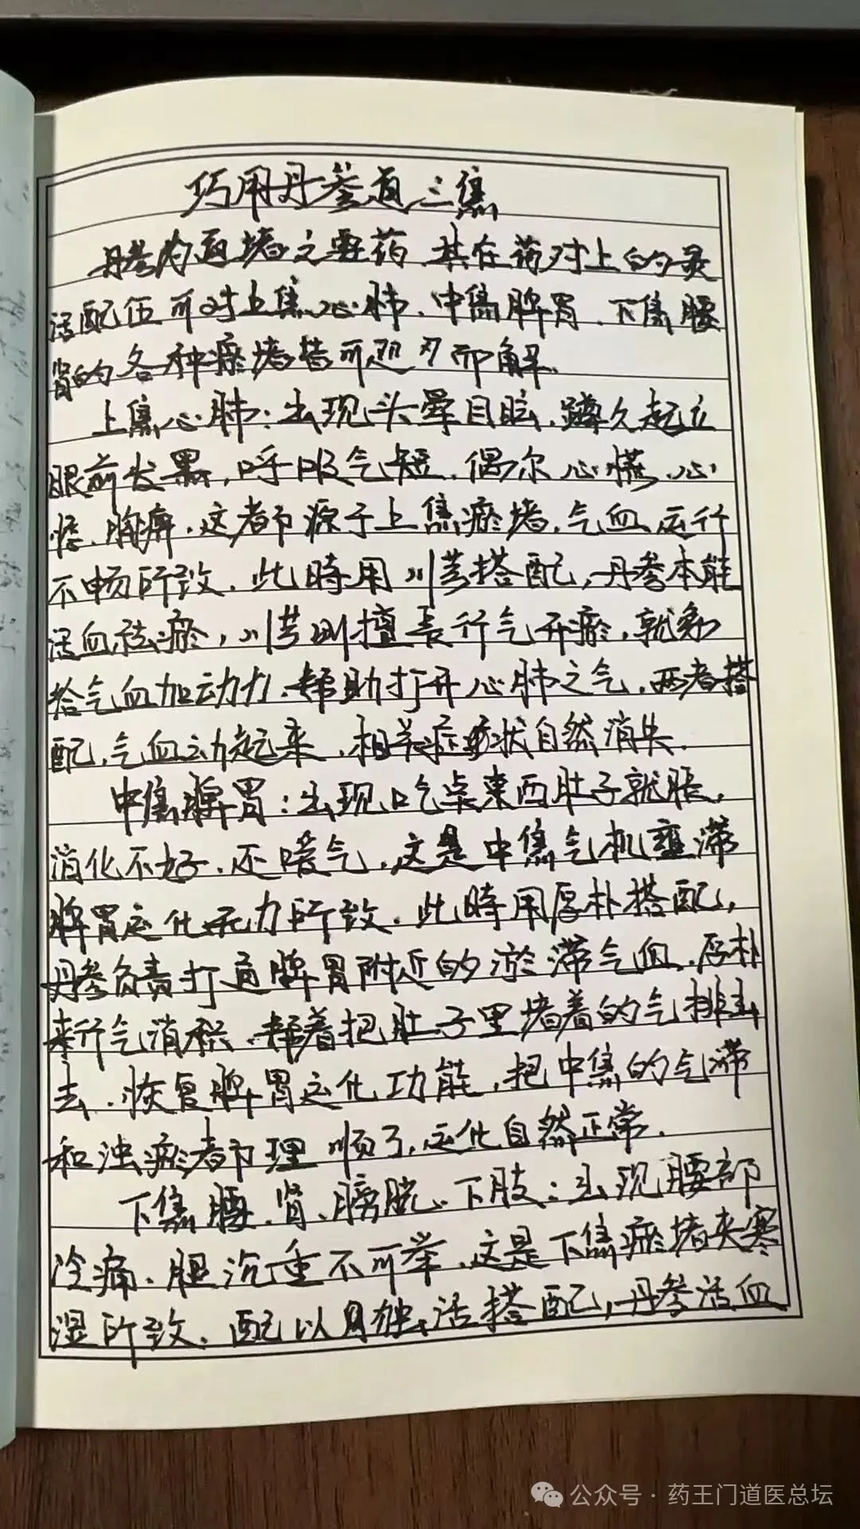 巧用丹参通三焦
丹参为通堵之要药，其在药对上的灵
活配伍可对上焦心肺、中焦脾胃、下焦腰
肾的各种瘀堵皆可迎刃而解。
上焦心肺：出现头晕目眩，蹲久起立
眼前发黑，呼吸气短，偶尔心慌、心
悸、胸痹，这都源于上焦瘀堵，气血运行
不畅所致，此時用川芎搭配，丹参本能
活血祛瘀，川芎则擅长行气开瘀，就象
给气血加动力，帮助打开心肺之气，两者搭
配，气血动起来，相关症状自然消失。
中焦脾胃：出现吃点東西肚子就胀，
消化不好，还嗳气，这是中焦气机壅滞
脾胃运化无力所致，此時用厚朴搭配，
丹参负责打通脾胃附近的淤滞气血，厚朴
来行气消积，帮着把肚子里堵着的气排出
去，恢复脾胃运化功能，把中焦的气滞
和浊瘀都理顺了，运化自然正常。
下焦腰、肾、膀胱、下肢：出现腰部
冷痛、腿沉重不可举，这是下焦瘀堵夹寒
湿所致，配以独活搭配，丹参活血
公众号·药王门道医总坛